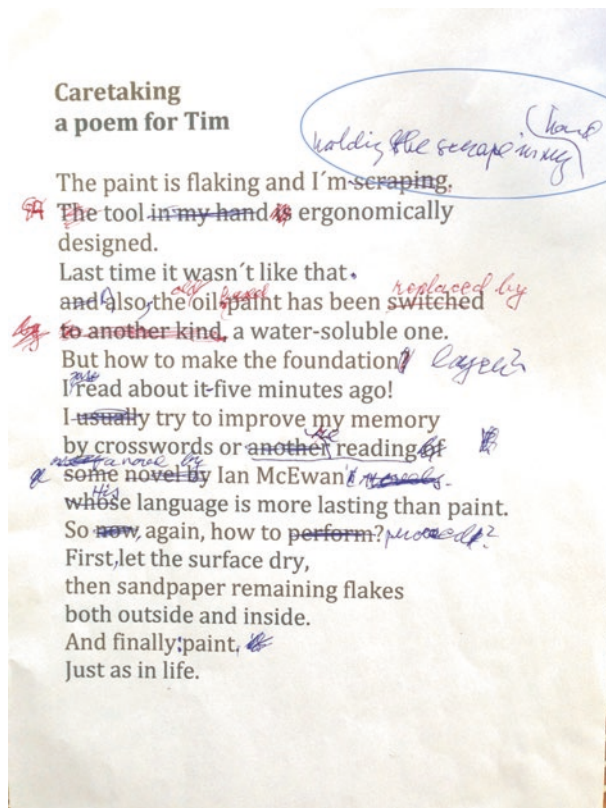 Caretaking
a poem for Tim
hand
holding the scrape in my
The paint is flaking and I´m scraping.
The tool in my hand is ergonomically
designed.
Last time it wasn´t like that.
old replaced by
and also, the oil paint has been switched
to another kind, a water-soluble one.
But how to make the foundation? layer?
just
I read about it five minutes ago!
I usually try to improve my memory
by crosswords or another reading of
a novel by
some novel by Ian McEwan
His
whose language is more lasting than paint.
So now, again, how to perform? proceed?
First, let the surface dry,
then sandpaper remaining flakes
both outside and inside.
And finally: paint.
Just as in life.